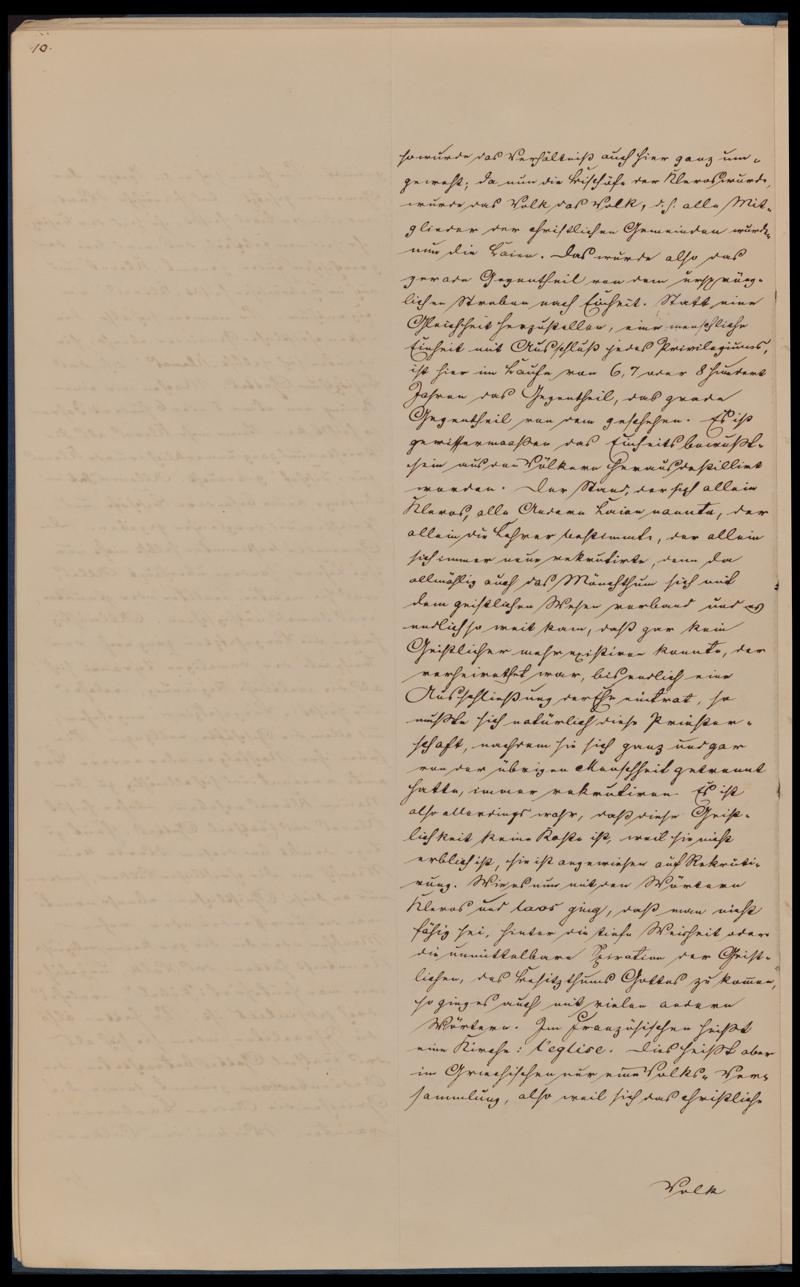 10.
so wurde das Verhältniß auch hier ganz um-
gewest; da nun die Bischöfe der Kleros wurde,
wurde das Volk das Volk, d.h. alle Mit-
glieder der christlichen Gemeinden wurden
nun die Laien. Das wurde also das
gerade Gegentheil von dem ursprüng-
lichen Streben nach Einheit. Statt eine
Gleichheit herzustellen, eine menschliche
Einheit mit Ausschluß jedes Privilegiums,
ist hier im Laufe von 6, 7 oder 8 hundert
Jahren das Gegentheil, das grade
Gegentheil von dem geschehen. Es ist
gewissermaaßen das Einheitsbewußt-
sein aus den Völkern herausdestillirt
worden. Der Stand, der sich allein
Kleros, alle Andern Laien nannte, der
allein die Lehrer bestimmte, der allein
sich immer neu rekrutirte, denn da
allmählig auch das Mönchthum sich mit
dem geistlichen Wesen verband und es
endlich so weit kam, daß gar kein
Geistlicher mehr existiren konnte, der
verheirathet war, bis endlich eine
Ausschließung der Ehe eintrat, so
mußte sich natürlich diese Priester-
schaft, nachdem sie sich ganz und gar
von der übrigen Menschheit getrennt
hatte, immer rekrutiren. Es ist
also allerdings wahr, daß diese Geist-
lichkeit keine Kaste ist, weil sie nicht
erblich ist, sie ist angewiesen auf Rekruti-
rung. Wie es nun mit den Wörtern
Kleros und laos ging, daß man nicht
fähig sei, hinter die tiefe Weisheit oder
die unmittelbare Spiration der Geist-
lichen, des Besitzthums Gottes zu kommen,
so ging es auch mit vielen andern
Wörtern. Im Französischen heißt
eine Kirche: l'eglise. Dies heißt aber
im Griechischen nur eine Volks-Ver-
sammlung, also weil sich das christliche
Volk